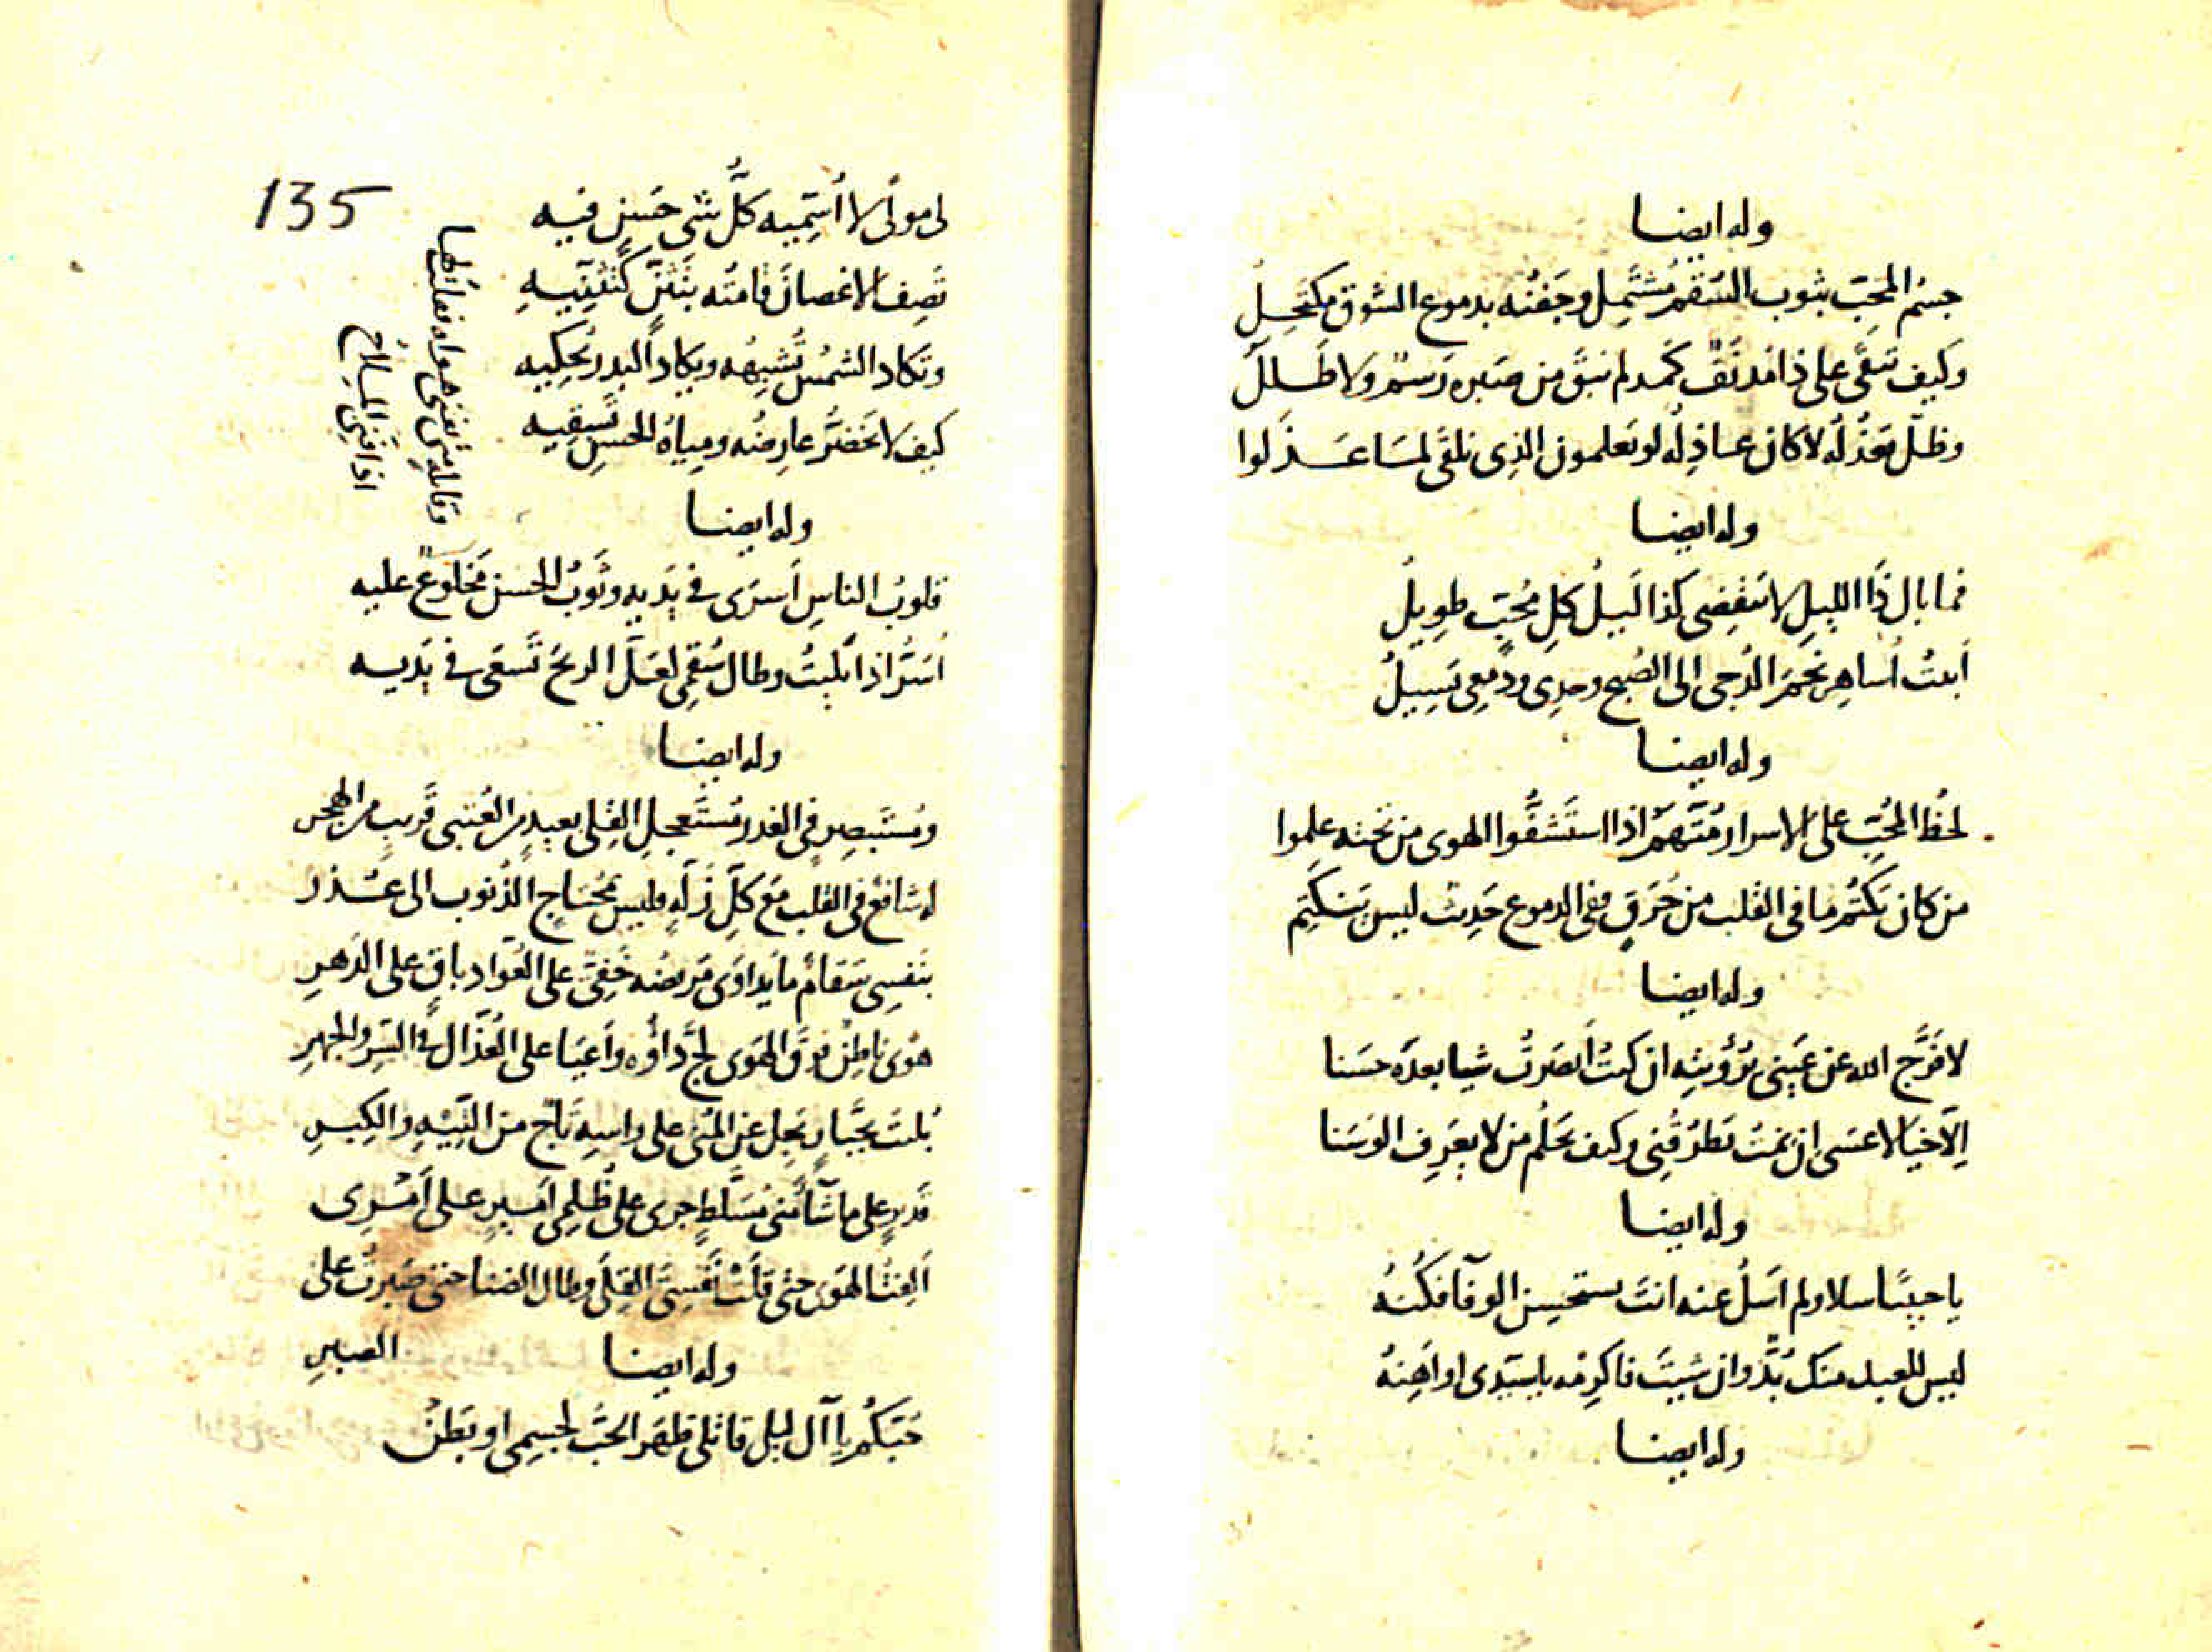 وله ايضا
جسْم المحبّ بثوب السُقم مُشتَمِل وجَفنُه بدموع الشوق مكتحِلُ
وكيف تبقى على ذا مُدنَفٌ كَمد لم تبق من صَبره رَسمٌ ولا طَلَلُ
وظلّ يَعذُلُه لا كان عاذِلُه لو تعلمون الذى نلقى لما عَذَلوا
وله ايضا
فما بال ذَا الليلِ لا ينقضى كذا لَيلُ كلِ مُحبّ طويلُ
اَبيتُ اُساهِر نجمَ الدُجى الى الصُبح وحدِى ودمعِى يَسِيلُ
وله ايضا
لحظُ المُحبّ على الاسرار مُتّهمٌ اذا استَشفُّوا الهوى من تحته علموا
من كان يَكتُم ما فى القلب من حُرَقٍ ففى الدموع حَديث ليس يَنكَتِم
وله ايضا
لا فَرَّج الله عن عَينى برُؤيتِه ان كنتُ اَبصَرتُ شيا بعدَه حسَنا
اِلّا خيَالا عسَى اِن نمتُ يَطرُقُنِى وكيف يَحلُم من لا يعَرِف الوَسَنا
وله ايضا
يا حبيبًا سلا ولم اَسلُ عنه انتَ تستحسِن الوفآ فكُنهُ
ليس للعبد منك بُدٌّ وان شيتَ فاكرِمه يا سيّدى او اَهِنهُ
وله ايضا
لى مولًى لا اُسَمّيه كلُّ شى حَسَنٍ فيه
تَصِف الاغصانَ قامتُه بتَثَنٍّ كتَثنّيهِ
وتكاد الشمسُ تُشبِهُه ويكاد البدر يُحكِيه
كيف لا يخضَرُّ عارضُه ومياهُ الحسنِ تَسقِيه
وقاتلتِى بفنى هواه فقلتُها
اذا فنى الملاح
وله ايضا
قلوبُ الناسِ اَسرَى فى يدَيه وثَوبُ الحسن مَخلوعٌ عليه
اُسَرُّ اذا بَلِيتُ وطال سُقمِى لعَلّ الريحَ تَسعَى فى يدَيه
وله ايضا
ومُستَبصِرٍ فى الغدر مُستَعجِل القِلى بعيدٍ من العُتبى قَريبٍ من الهجر
له شافعٌ فى القلب مَع كلِّ زَلّهٍ فليس بمُحتاج الذُنوب الى عُذر
بنَفسِى سَقامٌ ما يُداوَى مَريضُه خَفِىٌّ على العُوّاد باقٍ على الدَهرِ
هوًى باطنٌ فوقَ الهَوى لجَّ دَاؤُه واَعيَا على العُذّال فى السِرِ والجهرِ
بُليتُ بجَبّارٍ يَجِل عن المُنى على راسِه تَاجٌ من التِيْهِ والكِبرِ
قَديرٍ على ما شَآ منى مُسَلّطٍ جرى على ظُلمِى اَميرٍ على اَمرِى
اَلِفتُ الهَوَى حتى قلَتْ نَفسِىَ القِلَى وطال الضنا حتى صَبرتُ على
الصبرِ
وله ايضا
حُبّكُم يا آل ليلى قاتلى ظَهَر الحُبُّ لجسمِى او بَطَنْ